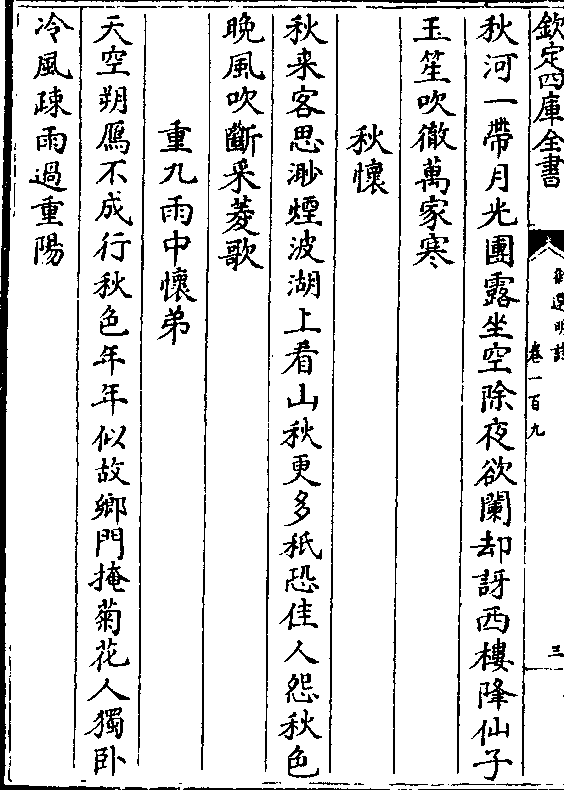 欽定四庫全書
御選明詩
卷一百九
三
秋河一帶月光團露坐空除夜欲闌却訝西樓降仙子
玉笙吹徹萬家寒
秋懷
秋来客思渺煙波湖上看山秋更多秪恐佳人怨秋色
晚風吹斷采菱歌
重九雨中懷弟
天空朔鴈不成行秋色年年似故鄉門掩菊花人獨卧
冷風疎雨過重陽